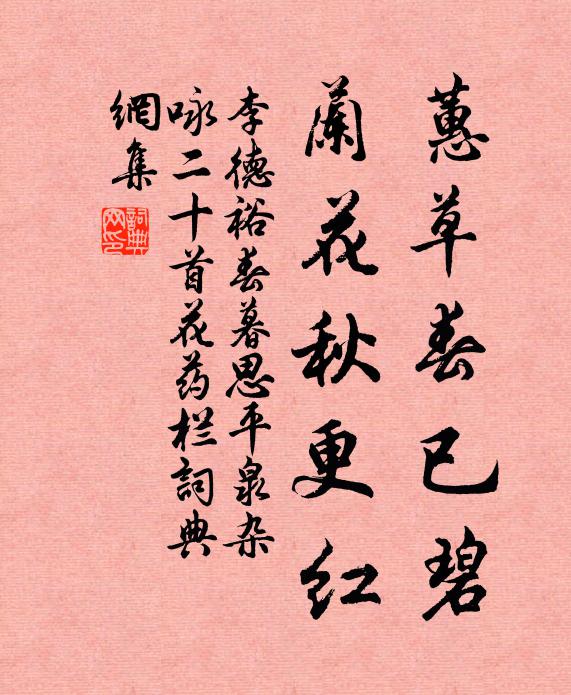 蕙草春已碧
蘭花秋更红
李德裕春暮思平泉杂
咏二十首花药栏詞典
網集
詞典
网印